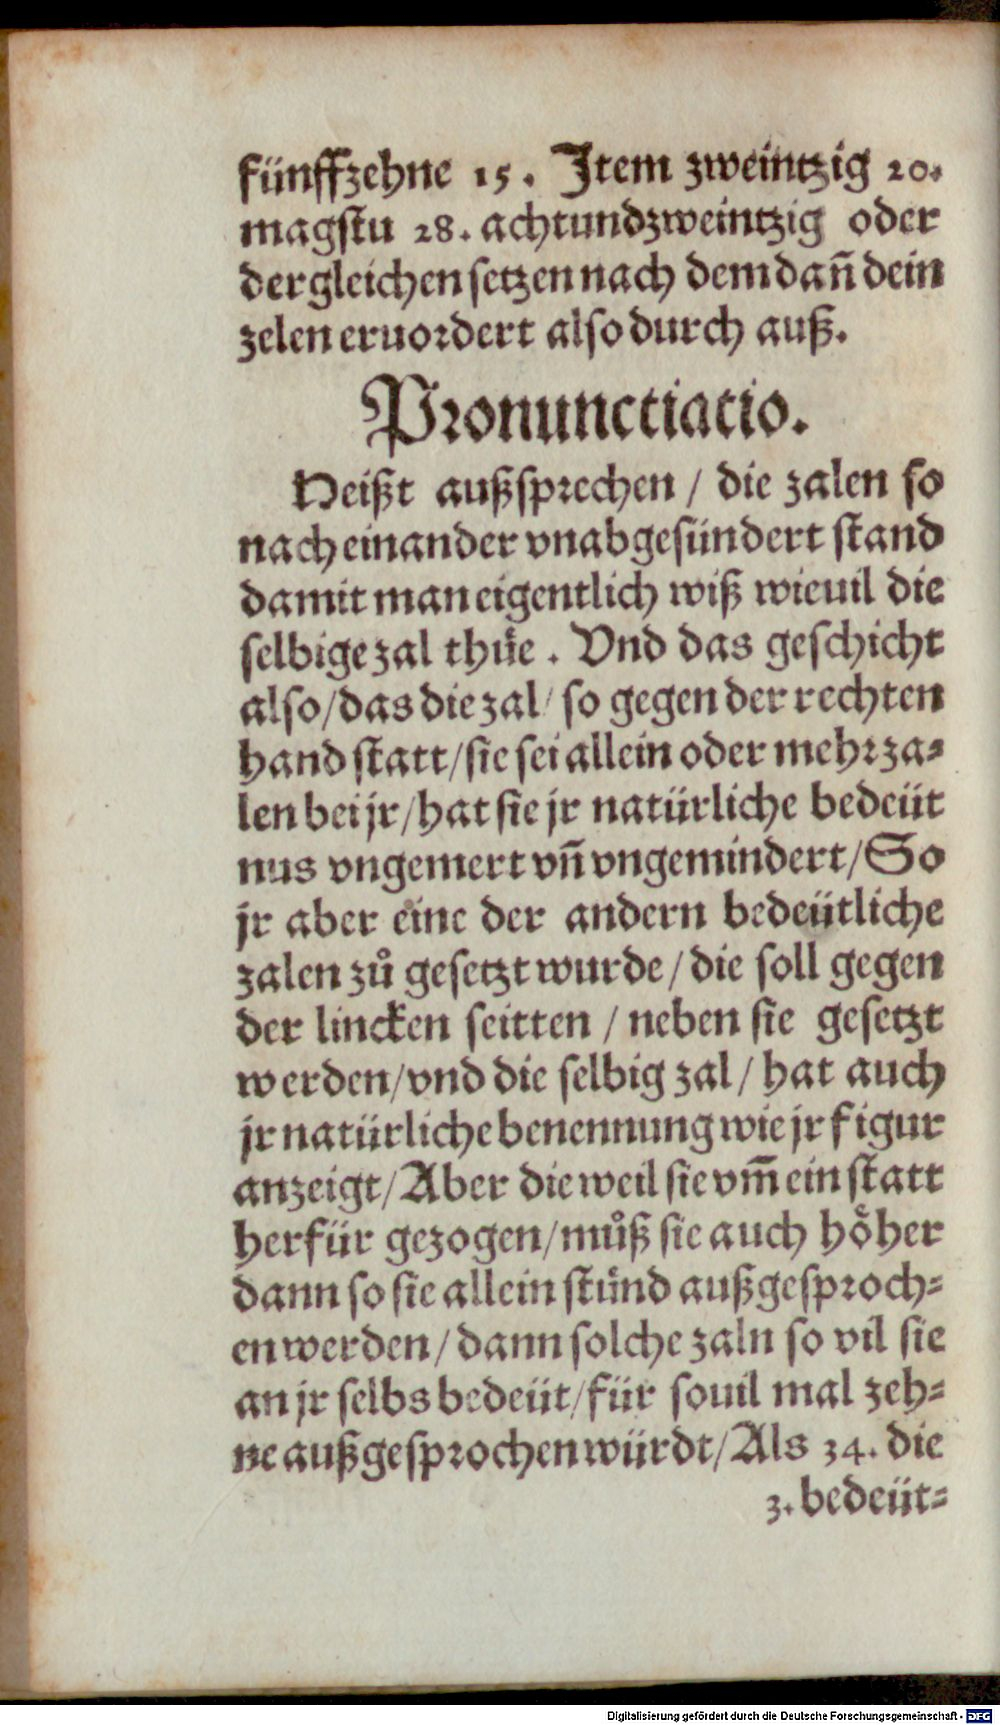 fünffzehne 15. Item zweintzig 20.
magstu 28. achtundzweintzig oder
dergleichen setzen nach dem dañ dein
zelen eruordert also durch auß.
Pronunctiatio.
Heißt außsprechen / die zalen so
nach einander vnabgesündert stand
damit man eigentlich wiß wieuil die
selbige zal thüe. Vnd das geschicht
also/das die zal/ so gegen der rechten
hand statt/sie sei allein oder mehr za=
len bei jr/hat sie jr natürliche bedeüt
nus vngemert vñ vngemindert/So
jr aber eine der andern bedeütliche
zalen zů gesetzt wurde/die soll gegen
der lincken seitten / neben sie gesetzt
werden/vnd die selbig zal/ hat auch
jr natürliche benennung wie jr figur
anzeigt/Aber die weil sie vm̃ ein statt
herfür gezogen/můß sie auch hoͤher
dann so sie allein stünd außgesproch=
en werden/dann solche zaln so vil sie
an jr selbs bedeüt/für souil mal zeh=
ne außgesprochen würdt/Als 34. die
3. bedeüt=
Digitalisierung gefördert durch die Deutsche Forschungsgemeinschaft - DFG